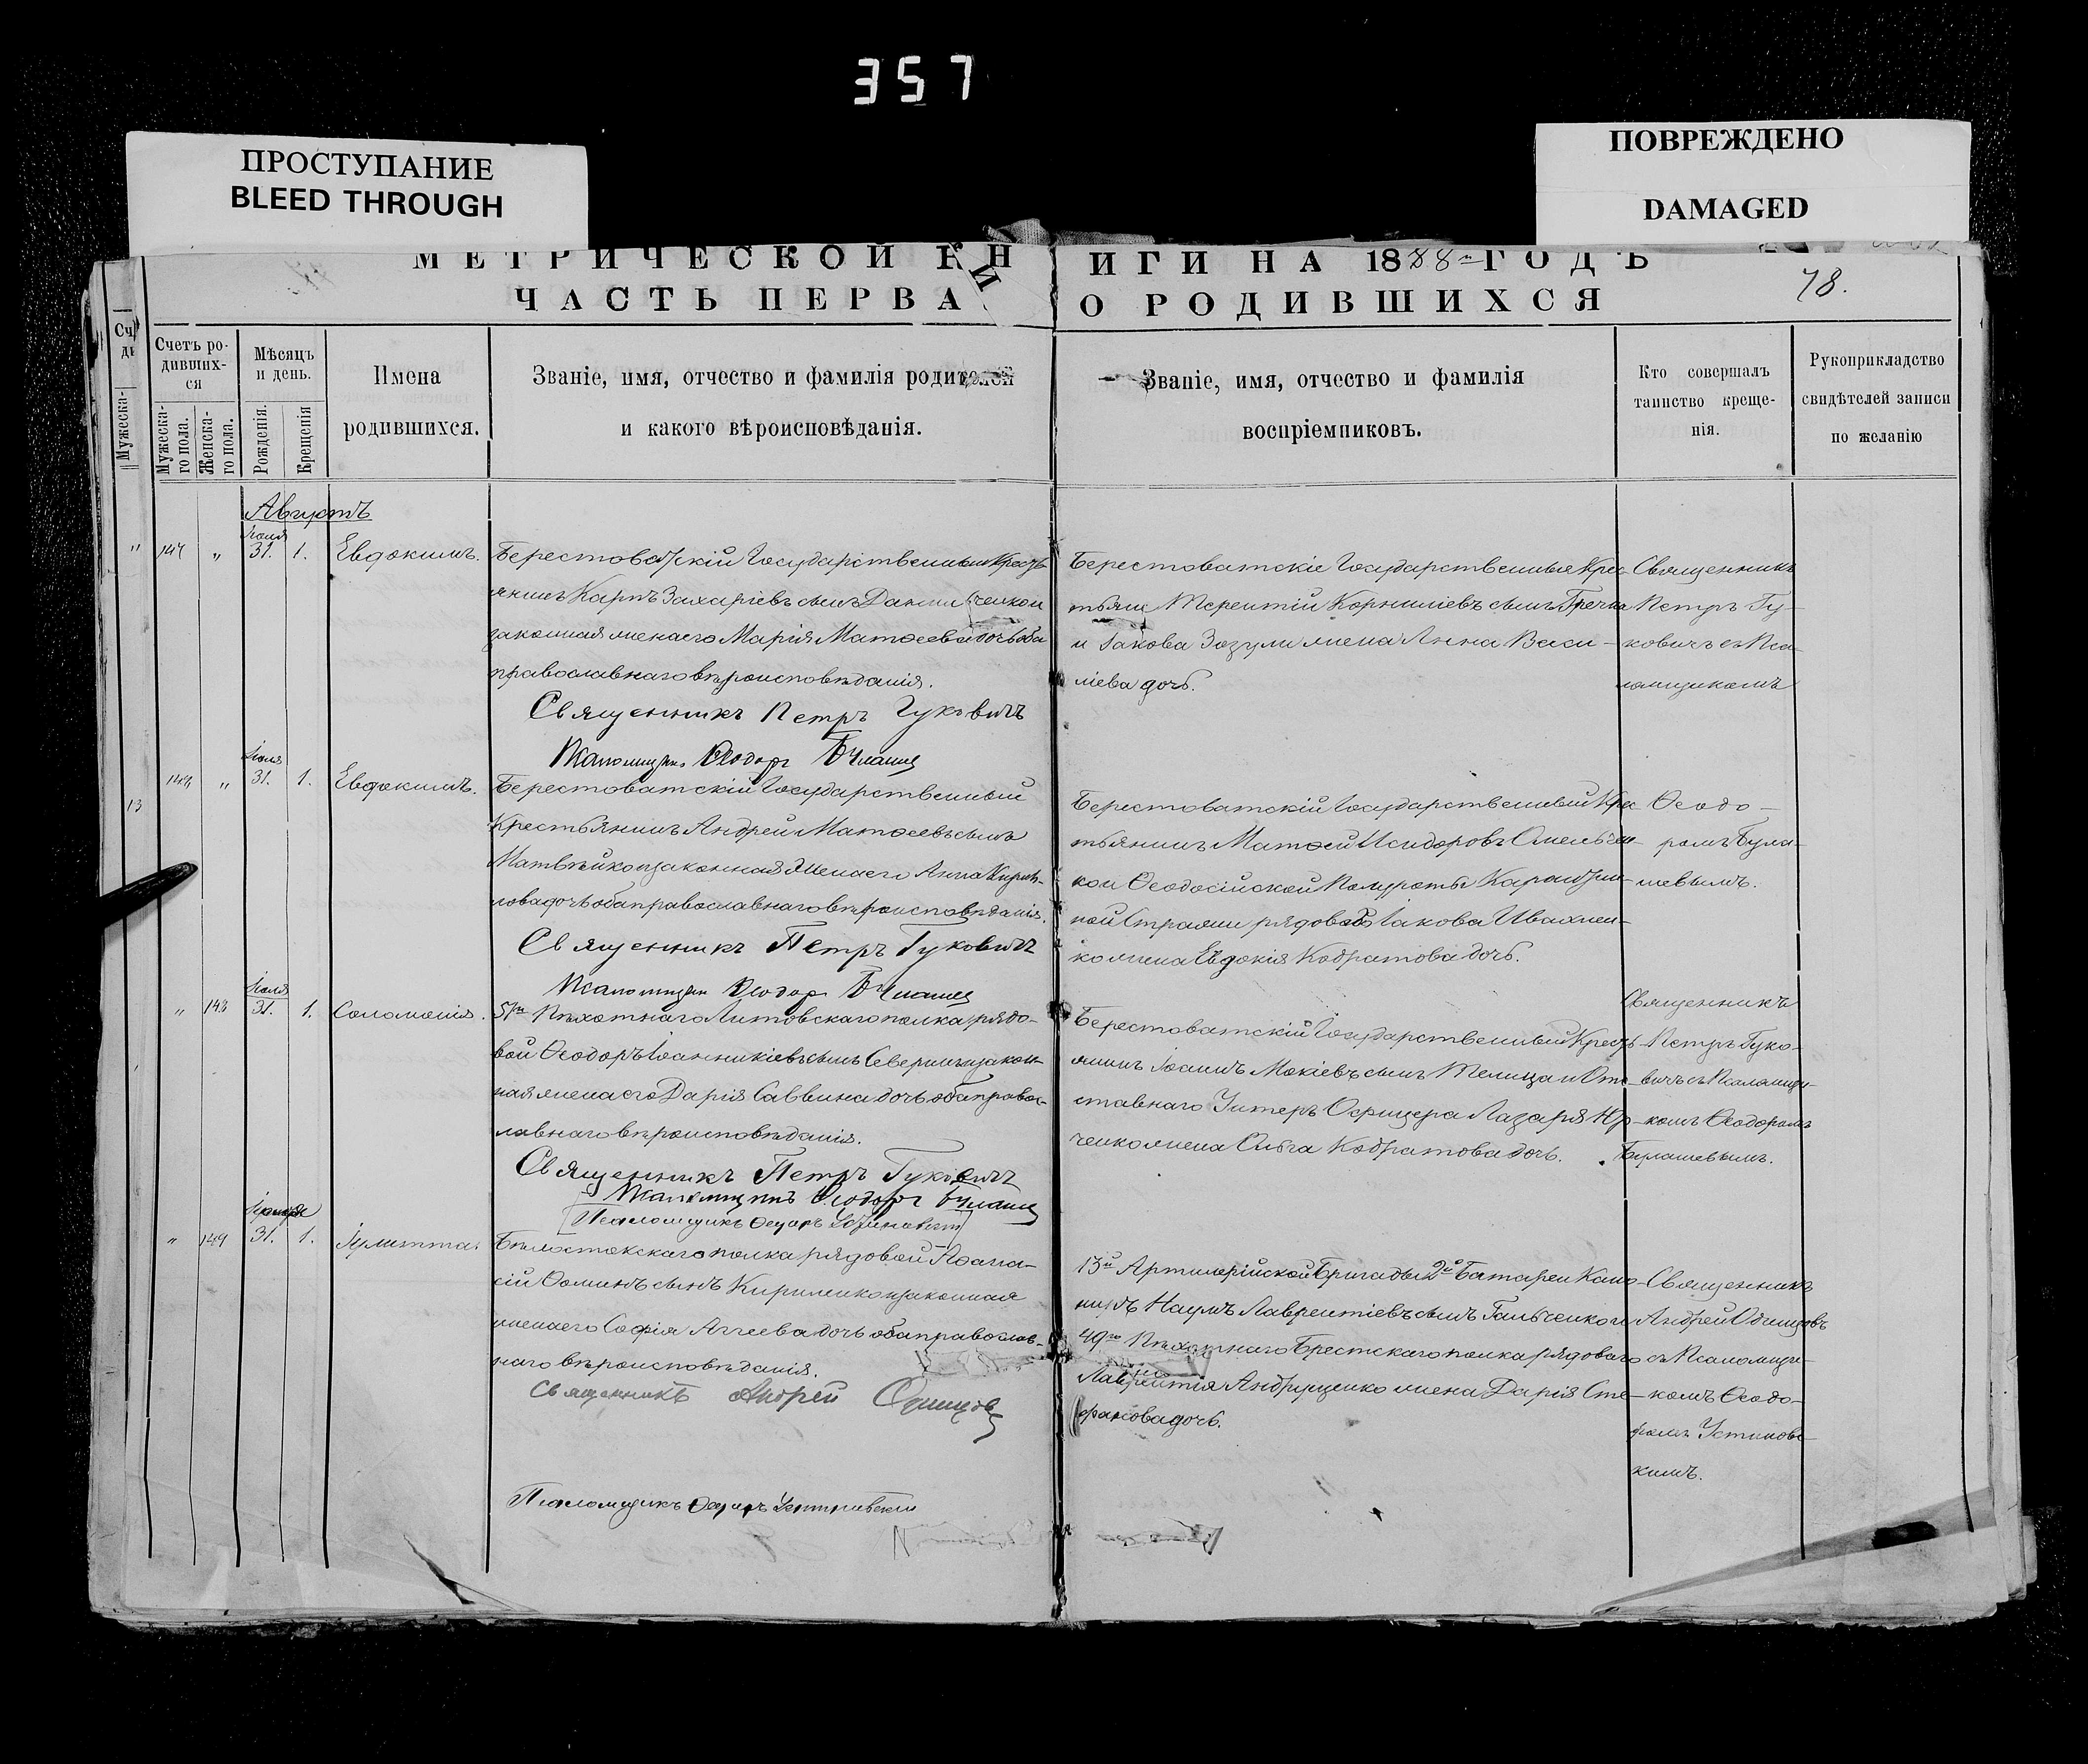 357
ПРОСТУПАНИЕ
BLEED THROUGH
ПОВРЕЖДЕНО
DAMAGED
МЕТРИЧЕСКОЙ КН
ИГИ НА 1888 ГОДЪ
78.
ЧАСТЬ ПЕРВА
О РОДИВШИХСЯ
Счетъ ро-
дивших-
ся
Мужеска-
го пола.
Женска-
го пола.
Мѣсяцъ
и день.
Рожденія.
Крещенія
Имена
родившихся.
Званіе, имя, отчество и фамилія родителей
и какого вѣроисповѣданія.
Званіе, имя, отчество и фамилія
воспріемниковъ.
Кто совершалъ
таинство креще-
нія.
Рукоприкладство
свидѣтелей записи
по желанію
Мужеска-
Августъ
147 " Іюля 31. 1. Евдокимъ.
Берестоватскій Государственный Кресть
янинъ Карпъ Захаріевъ сынъ
законная жена его Марія Матѳеева дочь оба
православнаго вѣроисповѣданія.
Священникъ Петръ Гуковичъ
Псаломщикъ Ѳеодоръ
Берестоватскіе Государственные Крес
тьяне Терентій Корниліевъ сынъ Гречка
и Іакова Зозули жена Анна Васи-
ліева дочь.
Священникъ
Петръ Гу-
ковичъ съ Пса-
ломщикомъ
" Іюля 31. 1. Евдокимъ.
Берестоватскій Государственный
Крестьянинъ Андрей Матѳеевъ сынъ
Матвѣйко и законная жена его Анна Кирил-
лова дочь оба православнаго вѣроисповѣданія.
Священникъ Петръ Гуковичъ
Псаломщикъ Ѳеодоръ
Берестоватскій Государственный Крес
тьянинъ Матѳей Исидоровъ Омельчен-
ко и Ѳеодосійской Полуроты
ной Стражи рядового Іакова Ивахнен-
ко жена Евдокія Кодратова дочь.
Ѳеодо-
ромъ Була-
шевымъ.
" 148 Іюля 31. 1. Соломонія.
51го Пѣхотнаго Литовскаго полка рядо-
вой Ѳеодоръ Іоанникіевъ сынъ Северинъ и закон-
ная жена его Дарія Саввина дочь оба правос-
лавнаго вѣроисповѣданія.
Священникъ Петръ Гуковичъ
Псаломщикъ Ѳеодоръ
Псаломщикъ Ѳедоръ Устиновскій
Берестоватскій Государственный Кресть-
янинъ Іоаннъ Мокіевъ сынъ Телица и От-
ставнаго Унтеръ Офицера Лазаря Юр-
ченко жена Ольга Кодратова дочь.
Священникъ
Петръ Гуко-
вичъ съ Псаломщи-
комъ Ѳеодоромъ
Булашевымъ.
" 149 31. 1. Іулитта.
Бѣлостокскаго полка рядовой Аѳана-
сій Ѳоминъ сынъ Кириленко и законная
жена его Софія Аггеева дочь оба православ-
наго вѣроисповѣданія.
Священникъ Андрей Одинцов
Псаломщикъ Ѳедоръ Устиновскій
13й Артилерійской Бригады 2й Батареи Кано-
ниръ Наумъ Лаврентіевъ сынъ Гальченко и
49го Пѣхотнаго Брестскаго полка рядового
Лаврентія Андрущенко жена Дарія Сте-
фанова дочь.
Священникъ
Андрей Одинцовъ
съ Псаломщи-
комъ Ѳеодо-
ромъ Устиновс-
кимъ.